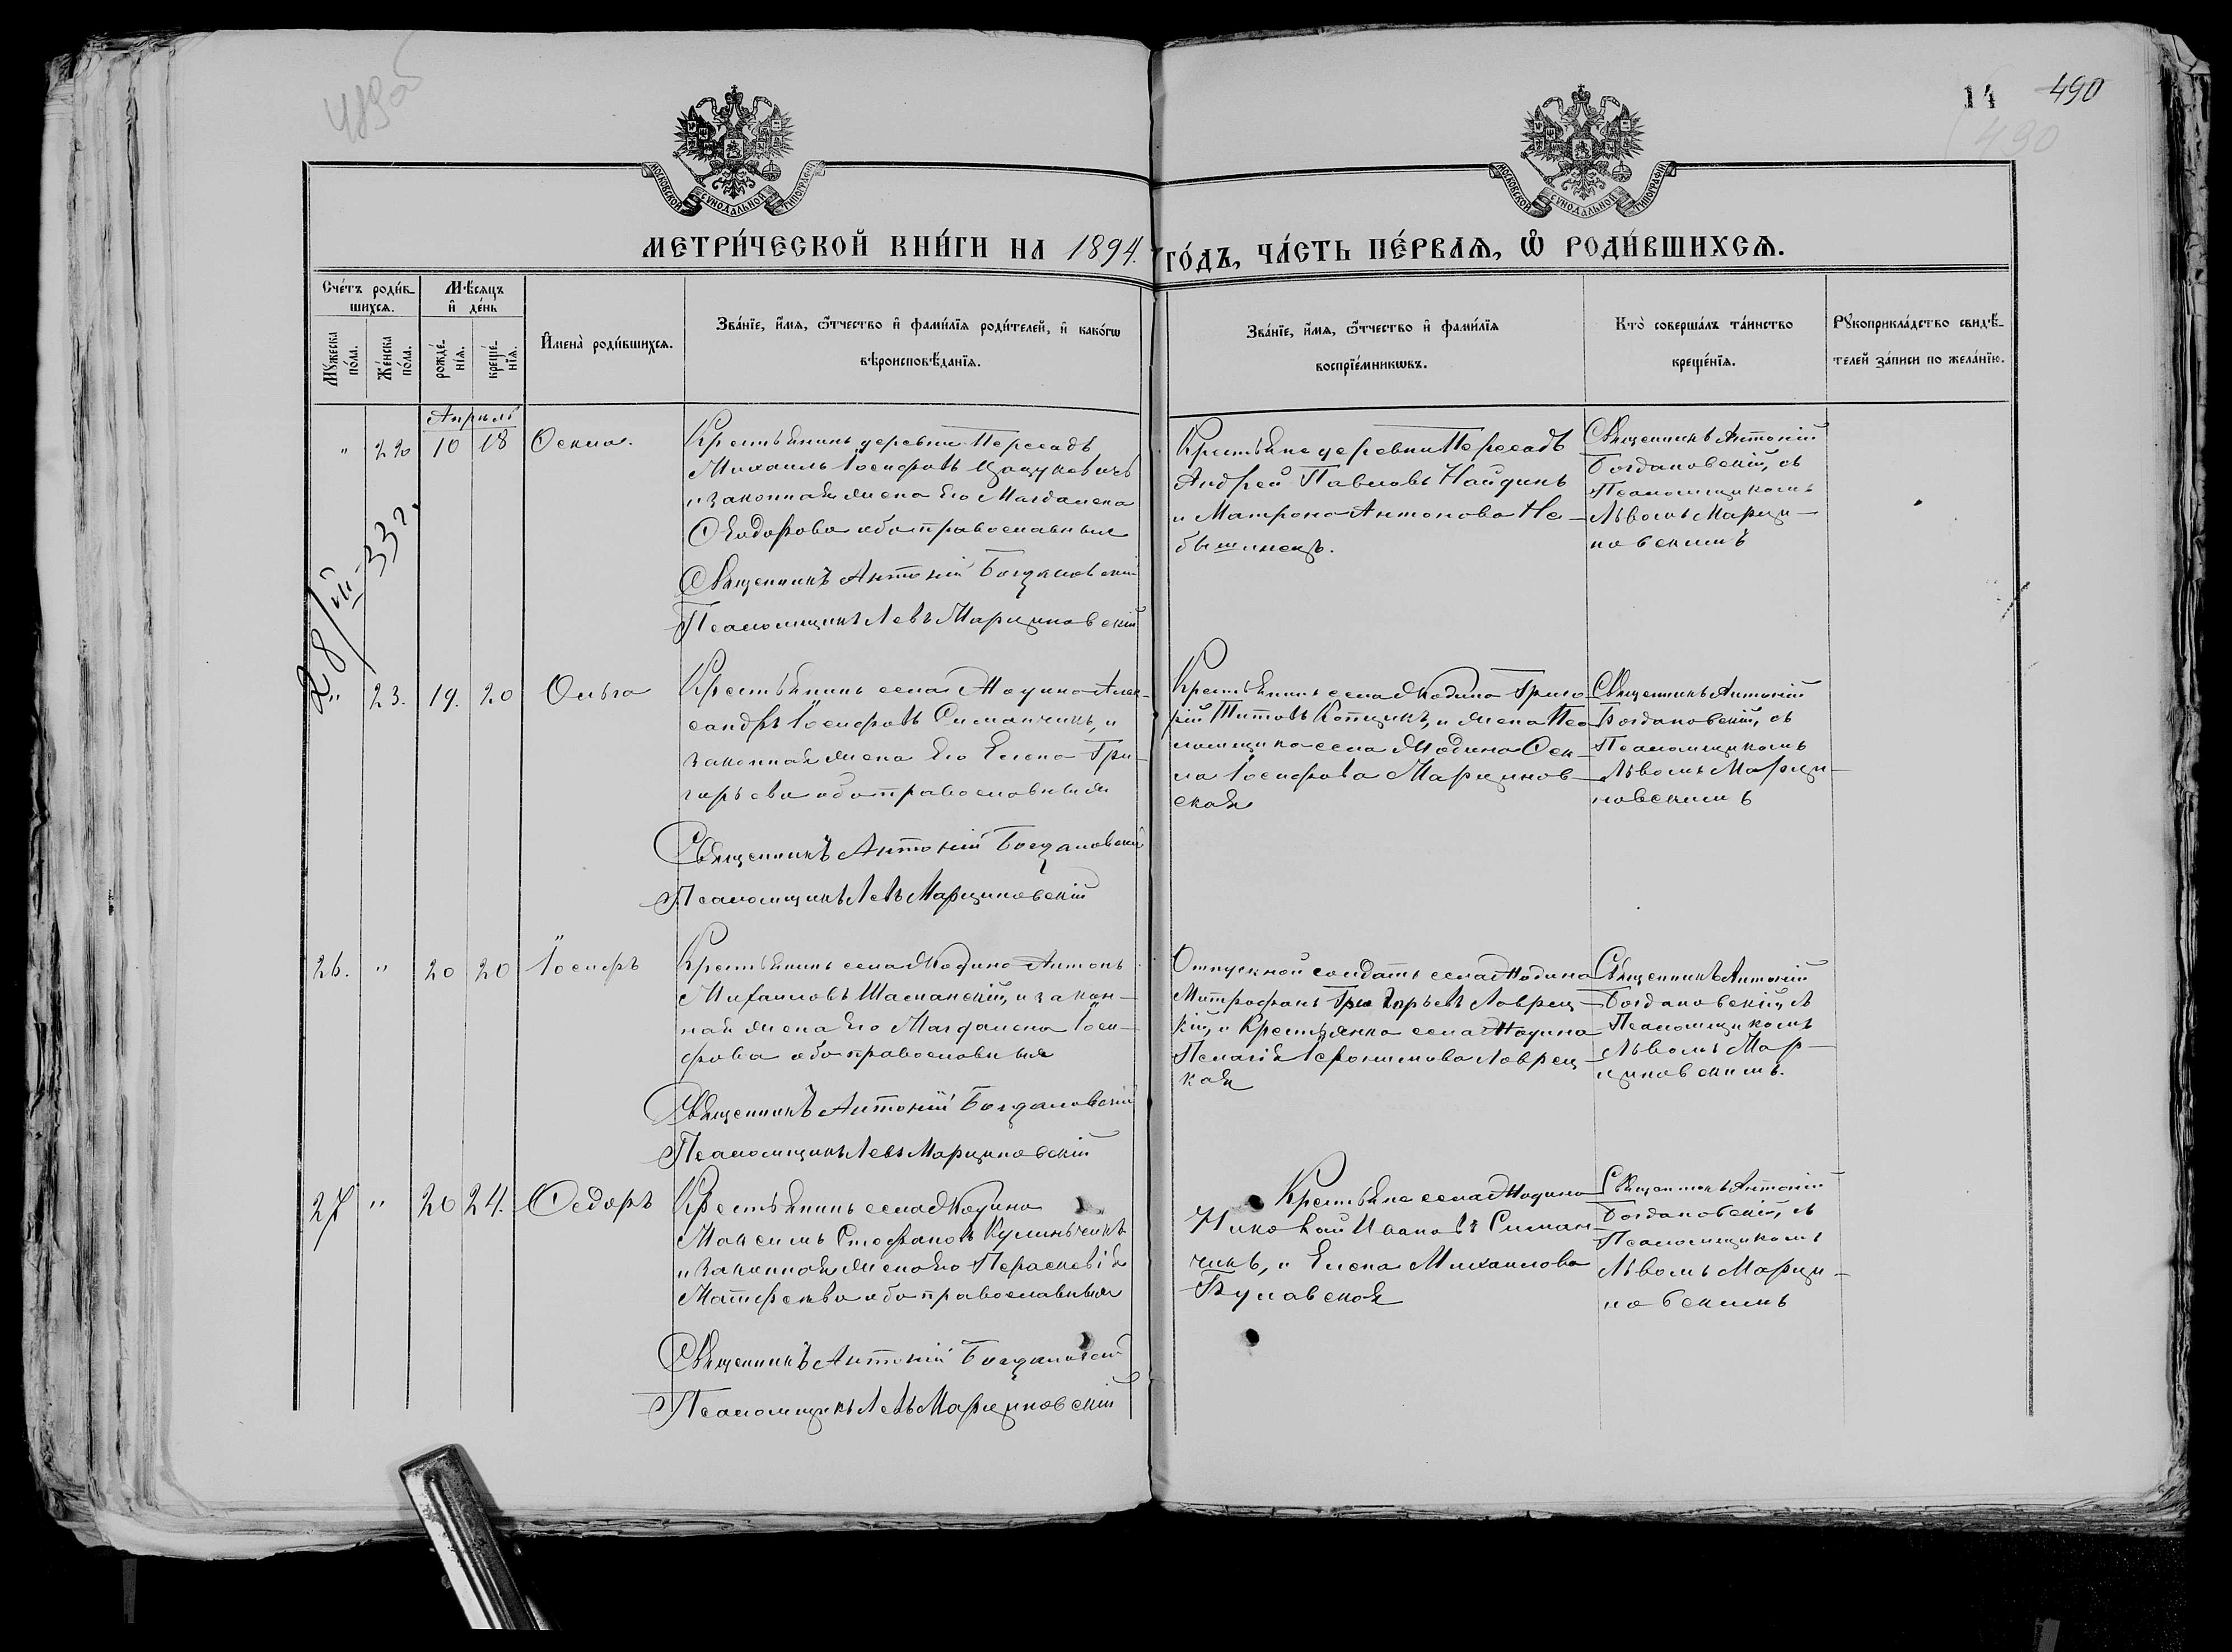 489 об
14 490
490
МОСКОВСКОЙ СУНОДАЛЬНОЙ ТИПОГРАФІИ
МОСКОВСКОЙ СУНОДАЛЬНОЙ ТИПОГРАФІИ
МЕТРИ́ЧЕСКОЙ КНИ́ГИ НА 1894. ГО́ДЪ, ЧА́СТЬ ПЕ́РВАЯ, Ѽ РОДИ́ВШИХСЯ.
Сче́тъ роди́вшихся.
Му́жеска по́ла.
Же́нска по́ла.
Мѣ́сяцъ и҆ де́нь
рожде́нїя.
креще́нїя.
И҆мена̀ роди́вшихся.
Зва́нїе, и҆́мя, ѻ҆́тчество и҆ фами́лїя роди́телей, и҆ како́гѡ
вѣроисповѣ́данїя.
Зва́нїе, и҆́мя, ѻ҆́тчество и҆ фами́лїя
воспрїе́мникѡвъ.
Кто̀ соверша́лъ та́инство
креще́нїя.
Рꙋкоприкла́дство свидѣ́-
телей за́писи по жела́нїю.
Апрѣль
" 22 10 18 Оекла.
Крестьянинъ деревни Пересадъ
Михаилъ Іосифовъ
и законная жена его Магдалена
Ѳеодорова оба православные
Священникъ Антоній Богдановскій
Псаломщикъ Левъ Марциновскій
Крестьяне деревни Пересадъ
Андрей Павловъ Найдинъ
и Матрона Антонова Не-
бышинецъ.
Священникъ Антоній
Богдановскій, съ
Псаломщикомъ
Львомъ Марци-
новскимъ
28/VII-33 г.
" 23. 19. 20 Ольга
Крестьянинъ села Жодина Алек-
сандръ Іосифовъ Симанчикъ, и
законная жена его Елена Гри-
горьева оба православныя
Священникъ Антоній Богдановскій
Псаломщикъ Левъ Марциновскій
Крестьянинъ села Жодина Григо-
рій Титовъ Котщикъ, и жена Пса-
ломщика села Жодина Оек-
ла Іосифова Марциновс-
ская
Священникъ Антоній
Богдановскій, съ
Псаломщикомъ
Львомъ Марци-
новскимъ
26. " 20 20 Іосифъ
Крестьянинъ села Жодина Антонъ
Михаиловъ Шаспанскій, и закон-
ная жена его Магдалена Іоси-
фова оба православные
Священникъ Антоній Богдановскій
Псаломщикъ Левъ Марциновскій
Отпускной солдатъ села Жодина
Митрофанъ Григорьевъ Лаврец-
кій, и Крестьянка села Жодина
Пелагія Іеронимова Лаврец-
кая
Священникъ Антоній
Богдановскій, съ
Псаломщикомъ
Львомъ Мар-
циновскимъ.
27 " 20 24. Ѳедоръ
Крестьянинъ села Жодина
Максимъ Стефановъ Кулиньчикъ
и законная жена его Параскевія
Матфеева оба православныя
Священникъ Антоній Богдановскій
Псаломщикъ Левъ Марциновскій
Крестьяне села Жодина
Николай Ивановъ Симан-
чикъ, и Елена Михаилова
Булавская
Священникъ Антоній
Богдановскій, съ
Псаломщикомъ
Львомъ Марци-
новскимъ